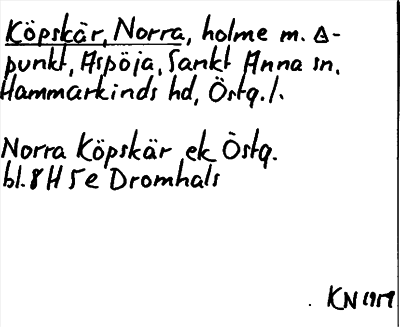 Köpskär, Norra, holme m. Δ-
punkt, Aspöja, Sankt Anna sn,
Hammarkinds hd, Östg. l.
Norra Köpskär ek Östg.
bl. 8 H 5 e Dromhals
KN 1959